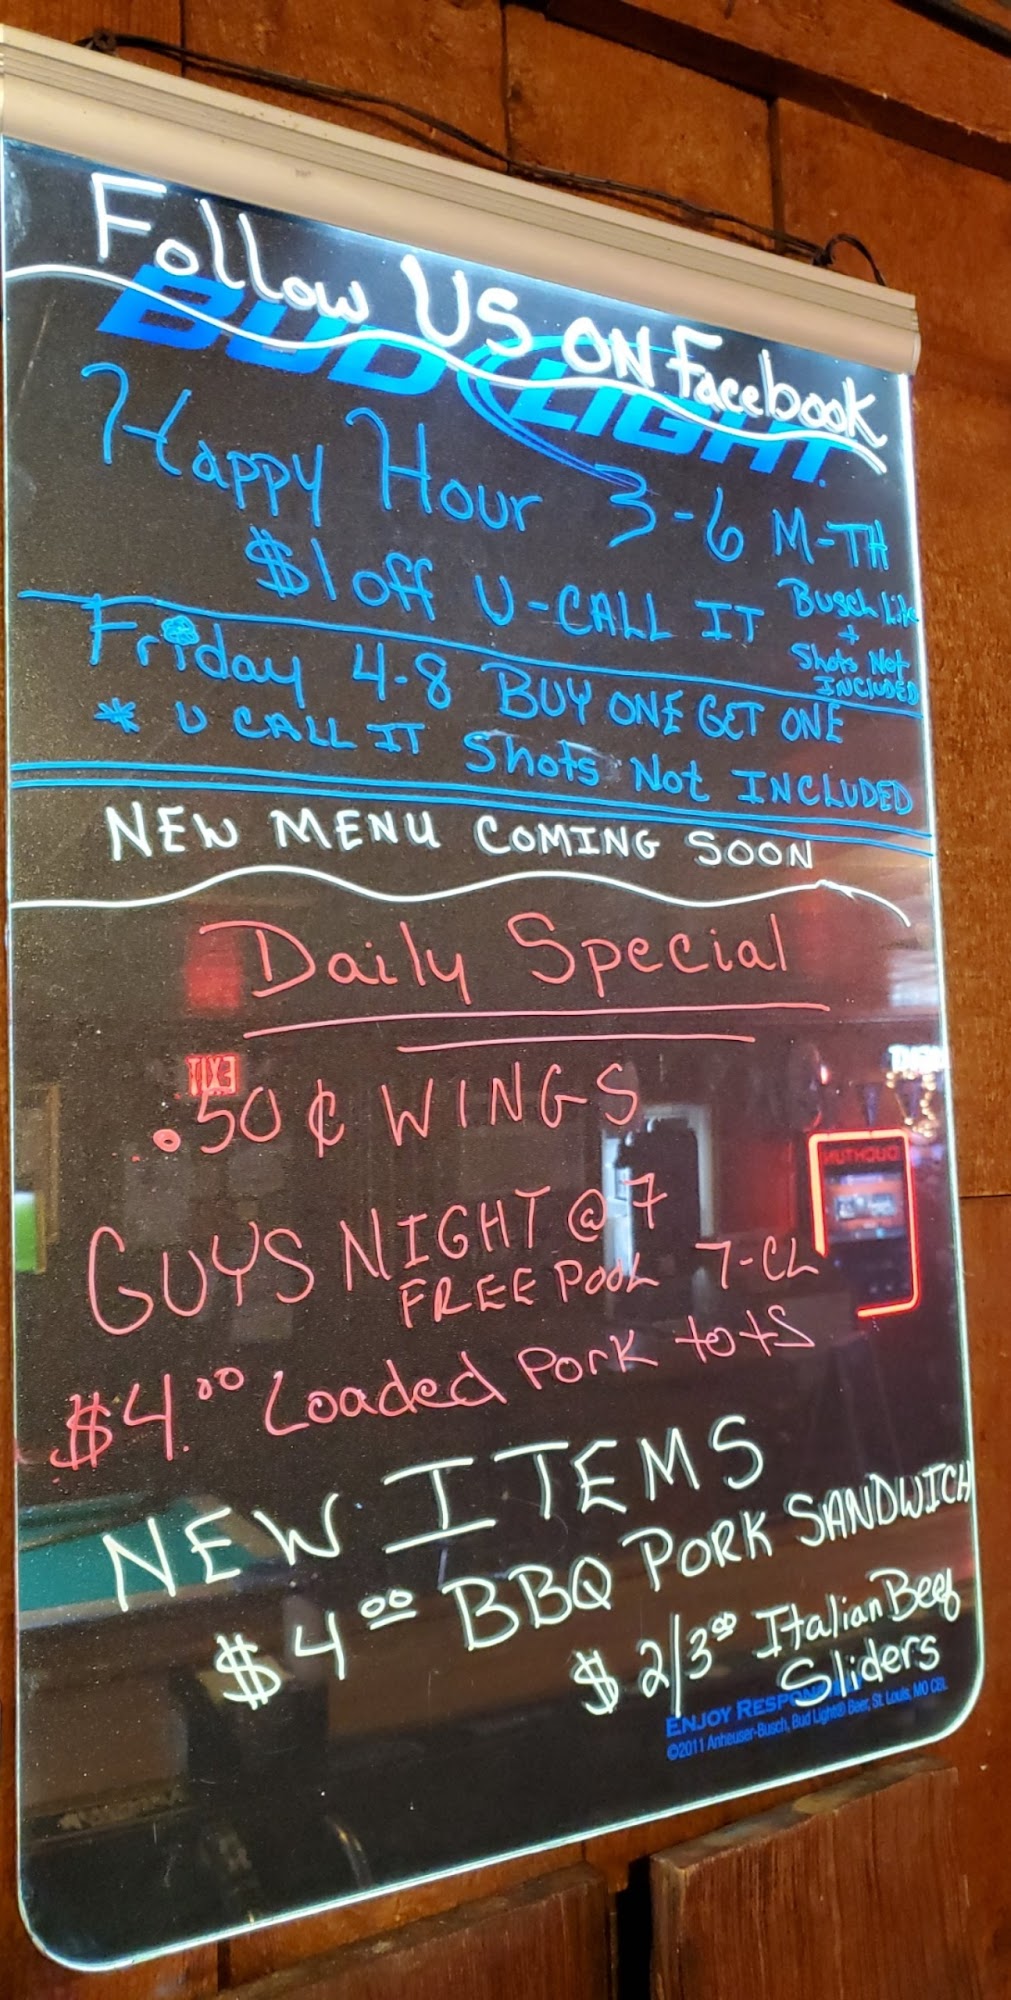 Follow US ON Facebook
BUD LIGHT
Happy Hour 3-6 M-TH
$1 off U-CALL IT
Busch Lite
+
Shots Not
INCLUDED
Friday 4-8 BUY ONE GET ONE
* U CALL IT Shots Not INCLUDED
NEW MENU COMING SOON
Daily Special
EXIT
.50 ¢ WINGS
GUYS NIGHT @ 7
FREE POOL 7-CL
$4.00 Loaded Pork tots
NEW ITEMS
$4 00 BBQ PORK SANDWICH
$2/3 00 Italian Beef
Sliders
ENJOY RESPONSIBLY
©2011 Anheuser-Busch, Bud Light® Beer, St. Louis, MO